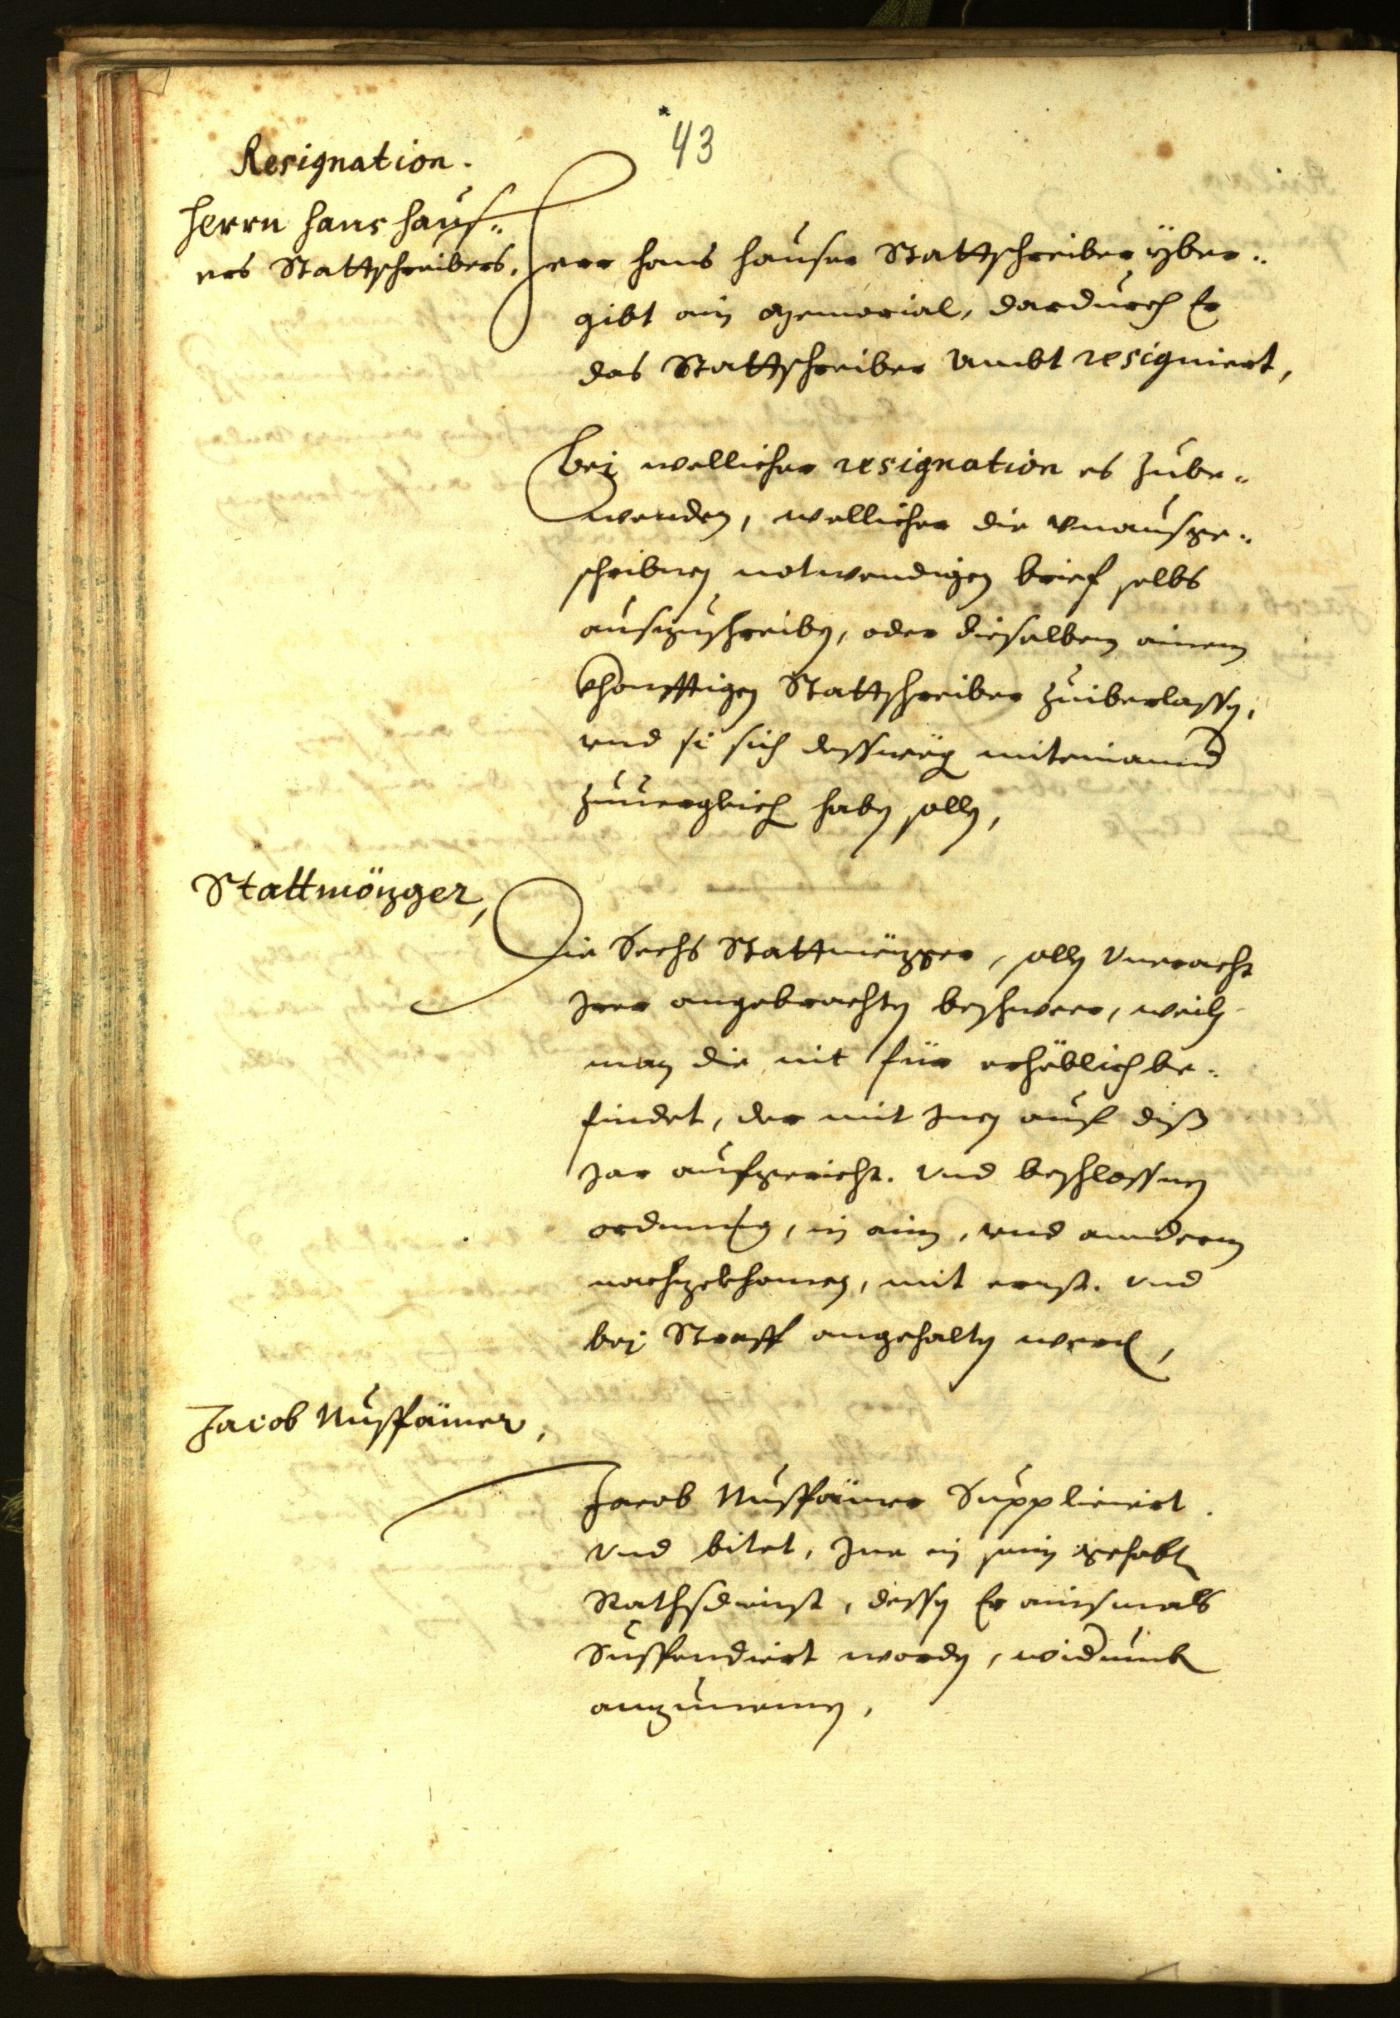 43
Resignation.
Herrn Hans Haus„
ers Stattschreibers.
Herr Hans Hauser Stattschreiber yber„
gibt ain Memorial, dardurch Er
das Stattschreiber Ambt resigniert,
Bei wellicher resignation es zube„
wenden, wellicher die vnausge„
schribnen notwendigen brief selbs
auszuschreiben, oder dieselben ainem
khonfftigen Stattschreiber zuiberlassen,
vnd si sich dessweg miteinannd
zuuergleichen haben sollen,
Stattmözger,
Die Sechs Stattmezger, sollen Vneracht
Irer angebrachten beschwer, weilen
man die nit für erheblich be„
findet, der mit Inen auf diß
Jar aufgericht. Vnd beschlossnen
ordnung, in ain, vnd anndern
nachzekhomen, mit ernst. Vnd
bej Straff angehalten werden,
Jacob Nussdamer,
Jacob Nussdamer Supplicirt
Vnd bitet, Ine in sein gehabt
Rathsdienst, dessen Er ainsmals
Suspendiert worden, widerumb
anzunemen,